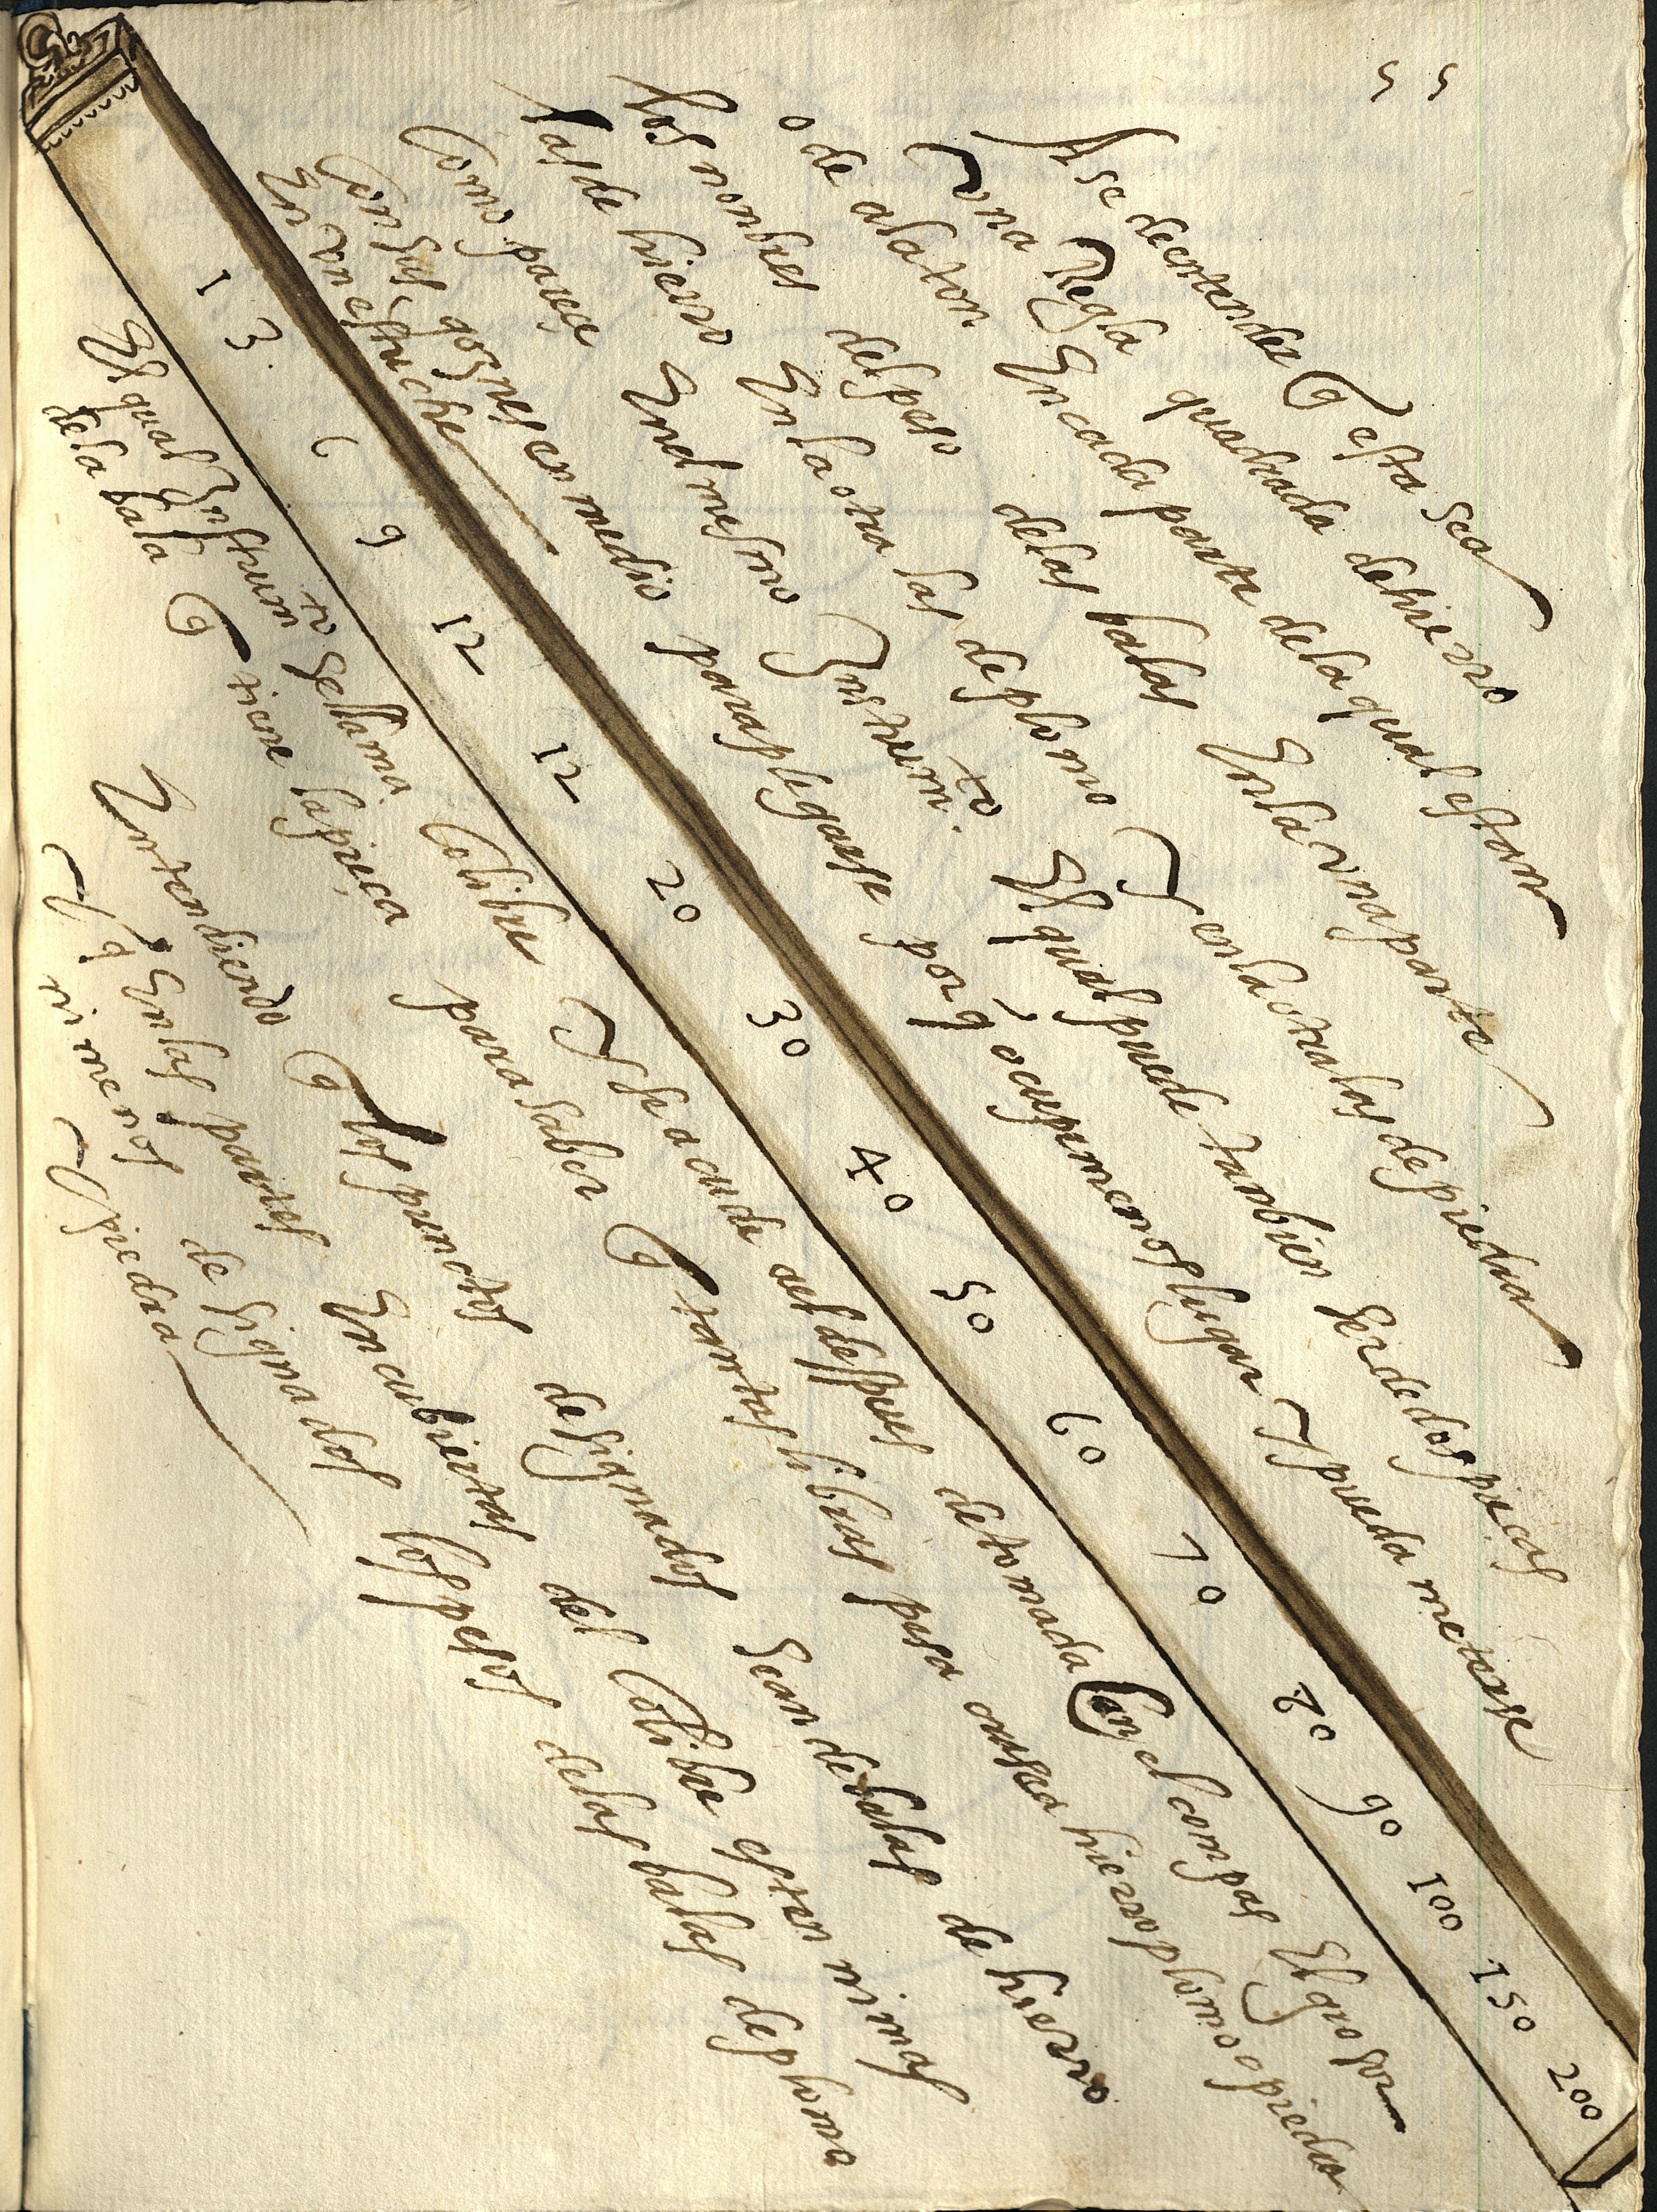 55
Ase de entender q̃ esta sea
una Regla quadrada de hierro
o de alaton En cada parte dela qual estan
los nonbres del peso delas balas En la una parte
las de hierro En la otra las de plomo Y en la otra las de piedra
Como pareçe En el mesmo Instrumto. El qual puede tanbien ser de dos pieças
Con sus gosnes en medio para plegarse porq̃ ocupe menos lugar Y pueda meterse
En un estuche
1 3 6 9 12 12 20 30 40 50 60 70 80 90 100 150 200
El qual Instrumto se llama Colibre Y se acude a el despues de tomada Con el compas El grosor
dela bala q̃ tiene la pieça para saber q̃ tantas libras pesa o u sea hierro plomo o piedra
Entendiendo q̃ los punctos designados sean de balas de hierro
Y q̃ En las partes Encubiertas del Colibre esten ni mas
ni menos designados los pesos delas balas de plomo
Y piedra